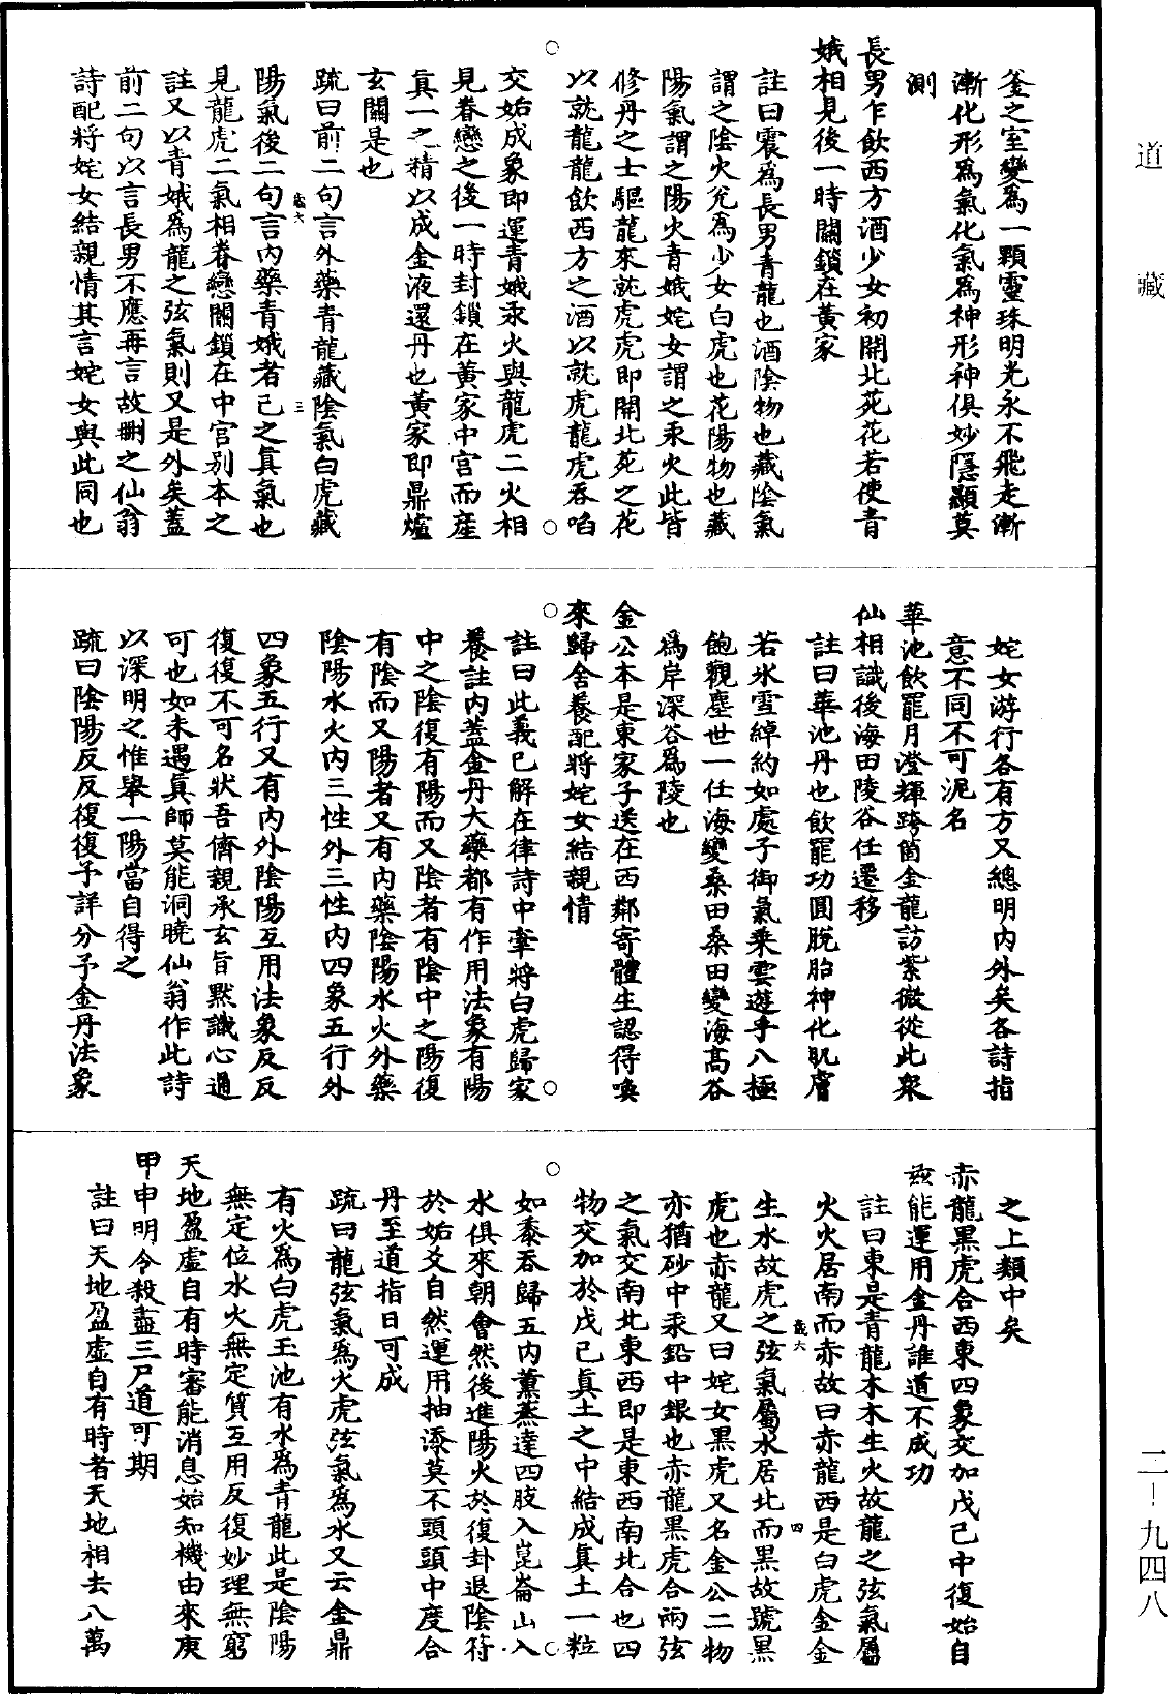 釜之室變爲一顆靈珠明光永不飛走漸
漸化形爲氣化氣爲神形神俱妙隱顯莫
測
長男乍飲西方酒少女初開北苑花若使青
娥相見後一時關鎖在黃家
註曰震爲長男青龍也酒陰物也藏陰氣
謂之陰火兊爲少女白虎也花陽物也藏
陽氣謂之陽火青娥姹女謂之汞火此皆
修丹之士驅龍來就虎虎即開北苑之花
以就龍龍飲西方之酒以就虎龍虎吞啗
交姤成象即運青娥汞火與龍虎二火相
見眷戀之後一時封鎖在黃家中宮而產
眞一之精以成金液還丹也黃家即鼎爐
玄關是也
疏曰前二句言外藥青龍藏陰氣白虎藏
歲六 三
陽氣後二句言內藥青娥者己之眞氣也
見龍虎二氣相眷戀關鎖在中宮别本之
註又以青娥爲龍之弦氣則又是外矣蓋
前二句以言長男不應再言故刪之仙翁
詩配將姹女結親情其言姹女與此同也
姹女游行各有方又總明內外矣各詩指
意不同不可泥名
華池飲罷月澄輝跨箇金龍訪紫微從此衆
仙相識後海田陵谷任遷移
註曰華池丹也飲罷功圓脫胎神化肌膚
若氷雪綽約如處子御氣乘雲遊乎八極
飽觀塵世一任海變桑田桑田變海高谷
爲岸深谷爲陵也
金公本是東家子送在西鄰寄體生認得喚
來歸舍養配將姹女結親情
註曰此義已解在律詩中牽將白虎歸家
養註內蓋金丹大藥都有作用法象有陽
中之陰復有陽而又陰者有陰中之陽復
有陰而又陽者又有內藥陰陽水火外藥
陰陽水火內三性外三性內四象五行外
四象五行又有內外陰陽互用法象反反
復復不可名狀吾儕親承玄旨黙識心通
可也如未遇眞師莫能洞曉仙翁作此詩
以深明之惟舉一陽當自得之
疏曰陰陽反反復復予詳分予金丹法象
之上類中矣
赤龍黑虎合西東四象交加戊己中復始自
玆能運用金丹誰道不成功
註曰東是青龍木木生火故龍之弦氣屬
火火居南而赤故曰赤龍西是白虎金金
生水故虎之弦氣屬水居北而黑故號黑
歲六 四
虎也赤龍又曰姹女黑虎又名金公二物
亦猶砂中汞鉛中銀也赤龍黑虎合兩弦
之氣交南北東西即是東西南北合也四
物交加於戊己眞土之中結成眞土一粒
如黍吞歸五內薰蒸達四肢入崑崙山入
水俱來朝會然後進陽火於復卦退陰符
於姤爻自然運用抽添莫不頭頭中度合
丹至道指日可成
疏曰龍弦氣爲火虎弦氣爲水又云金鼎
有火爲白虎玉池有水爲青龍此是陰陽
無定位水火無定質互用反復妙理無窮
天地盈虛自有時審能消息始知機由來庚
甲申明令殺盡三尸道可期
註曰天地盈虛自有時者天地相去八萬
道藏
二-九四八